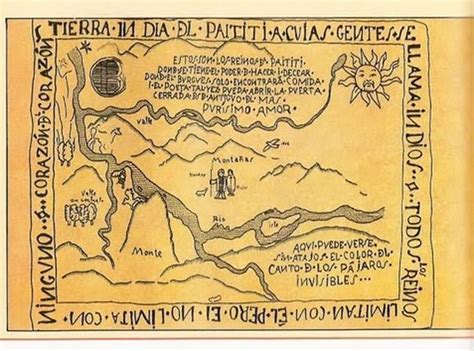 TIERRA·IN·DIA·DL·PAITITI·A·CUIAS·GENTES·SE
LLAMA·IN·DIOS·S·TODOS·LOS·REINOS
LIMITAN·CON·EL·PERO·EL·NO·LIMITA·CON·
NINGUNO·S·CORAZÓN·D·CORAZÓN·
ESTOS SON LOS REINOS D PAITITI
DOND SE TIENE EL PODER D HACER I DECEAR
DOND EL BURGUES SOLO ENCONTRARÁ COMIDA
I EL POETA TAL VEZ PUEDA ABRIR LA PUERTA
CERRADA DSD ANTIGUO DL MAS
PURÍSIMO AMOR.
Valle
Montañas
Valle
Río
isla
Monte
AQUI PUEDE VERSE
SIN ATAJOS EL COLOR DL
CANTO D LOS PÁJAROS
INVISIBLES...